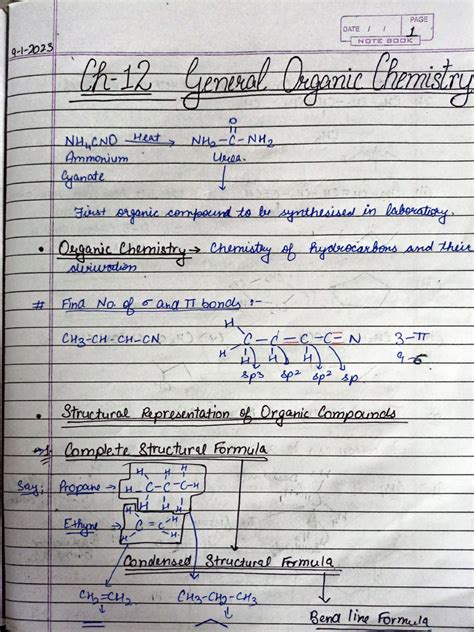 9-1-2023
DATE / /
PAGE 1
NOTE BOOK
Ch-12 General Organic Chemistry
O
NH4CNO Heat → NH2-C-NH2
Ammonium Urea.
Cyanate
First organic compound to be synthesised in laboratory.
• Organic Chemistry → Chemistry of hydrocarbons and their
derivation
# Find No. of σ and π bonds :-
CH3-CH-CH-CN
H
H-C-C=C-C≡N 3-π
H H H 9-σ
sp3 sp2 sp2 sp
• Structural Representation of Organic Compounds
1 Complete Structural Formula
Say; Propane →
H H H
H-C-C-C-H
H H H
Ethyne →
H H
C=C
H H
Condensed Structural Formula
CH2=CH2 CH3-CH2-CH3
Bond line Formula